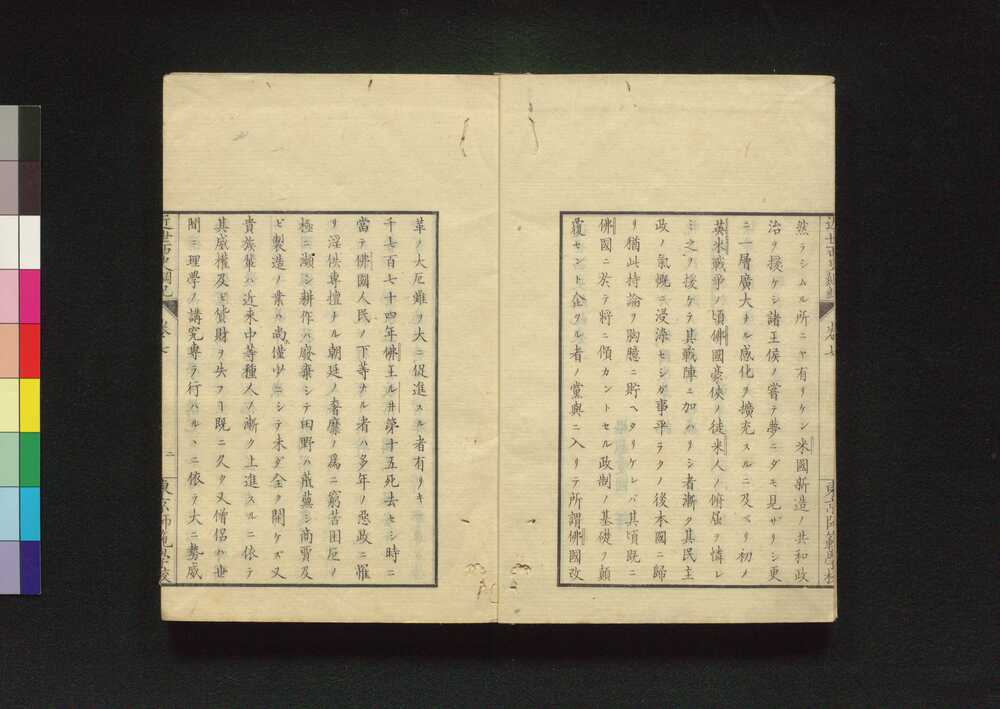 然ラシムル所ニヤ有リケン米國新造ノ共和政
治ヲ援ケシ諸王侯ノ嘗テ夢ニダモ見ザリシ更
ニ一層廣大ナル感化ヲ擴充スルニ及ベリ初ノ
英米戰爭ノ頃佛國豪俠ノ徒米人ノ俯屈ヲ憐レ
ミ之ヲ援ケテ其戰陣ニ加ハリシ者漸ク其民主
政ノ氣慨ニ浸染セシガ事平ラクノ後本國ニ歸
リ猶此持論ヲ胸臆ニ貯ヘタリケレバ其頃既ニ
佛國ニ於テ將ニ傾カントセル政制ノ基礎ヲ顛
覆セント企ツル者ノ黨與ニ入リテ所謂佛國改
革ノ大厄難ヲ大ニ促進スル者有リキ
千七百七十四年佛王ルイ第十五死去セシ時ニ
當テ佛國人民ノ下等ナル者ハ多年ノ惡政ニ罹
リ淫佚專擅ナル朝廷ノ奢靡ノ爲ニ窮苦困厄ノ
極ニ瀕シ耕作ハ廢棄シテ田野ハ荒蕪シ商賈及
ビ製造ノ業ハ尚僅少ニシテ未ダ全ク開ケズ又
貴族輩ハ近來中等種人ノ漸ク上進スルニ依テ
其威權及ビ貨財ヲ失フー既ニ久ク又僧侶ハ世
間ニ理學ノ講究專ラ行ハルヽニ依テ大ニ勢威
卷七
二
東京師範學校